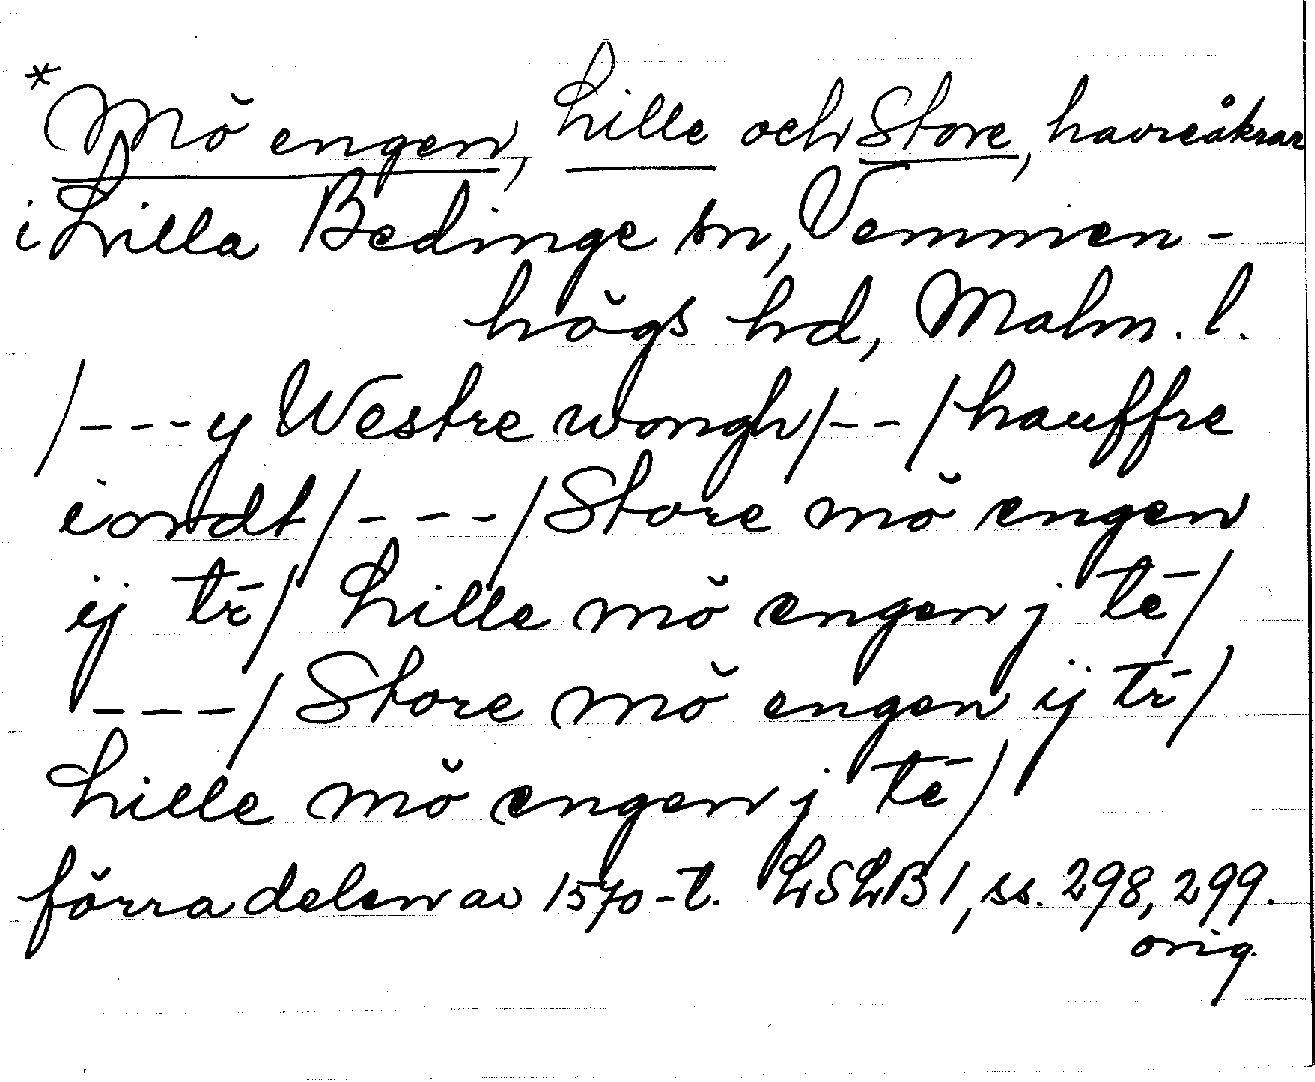 *Mö engen, Lille och Store, havreåkrar
i Lilla Bedinge sn, Vemmen-
högs hd, Malm. l.
/---y Westre wongh/--/hauffre
iordt/---/Store mö engen
ij tr̄/ Lille mö engen j tē/
---/Store mö engen ij tr̄/
Lille mö engen j tē/
förra delen av 1570-t. LSLB 1, ss. 298, 299.
orig.